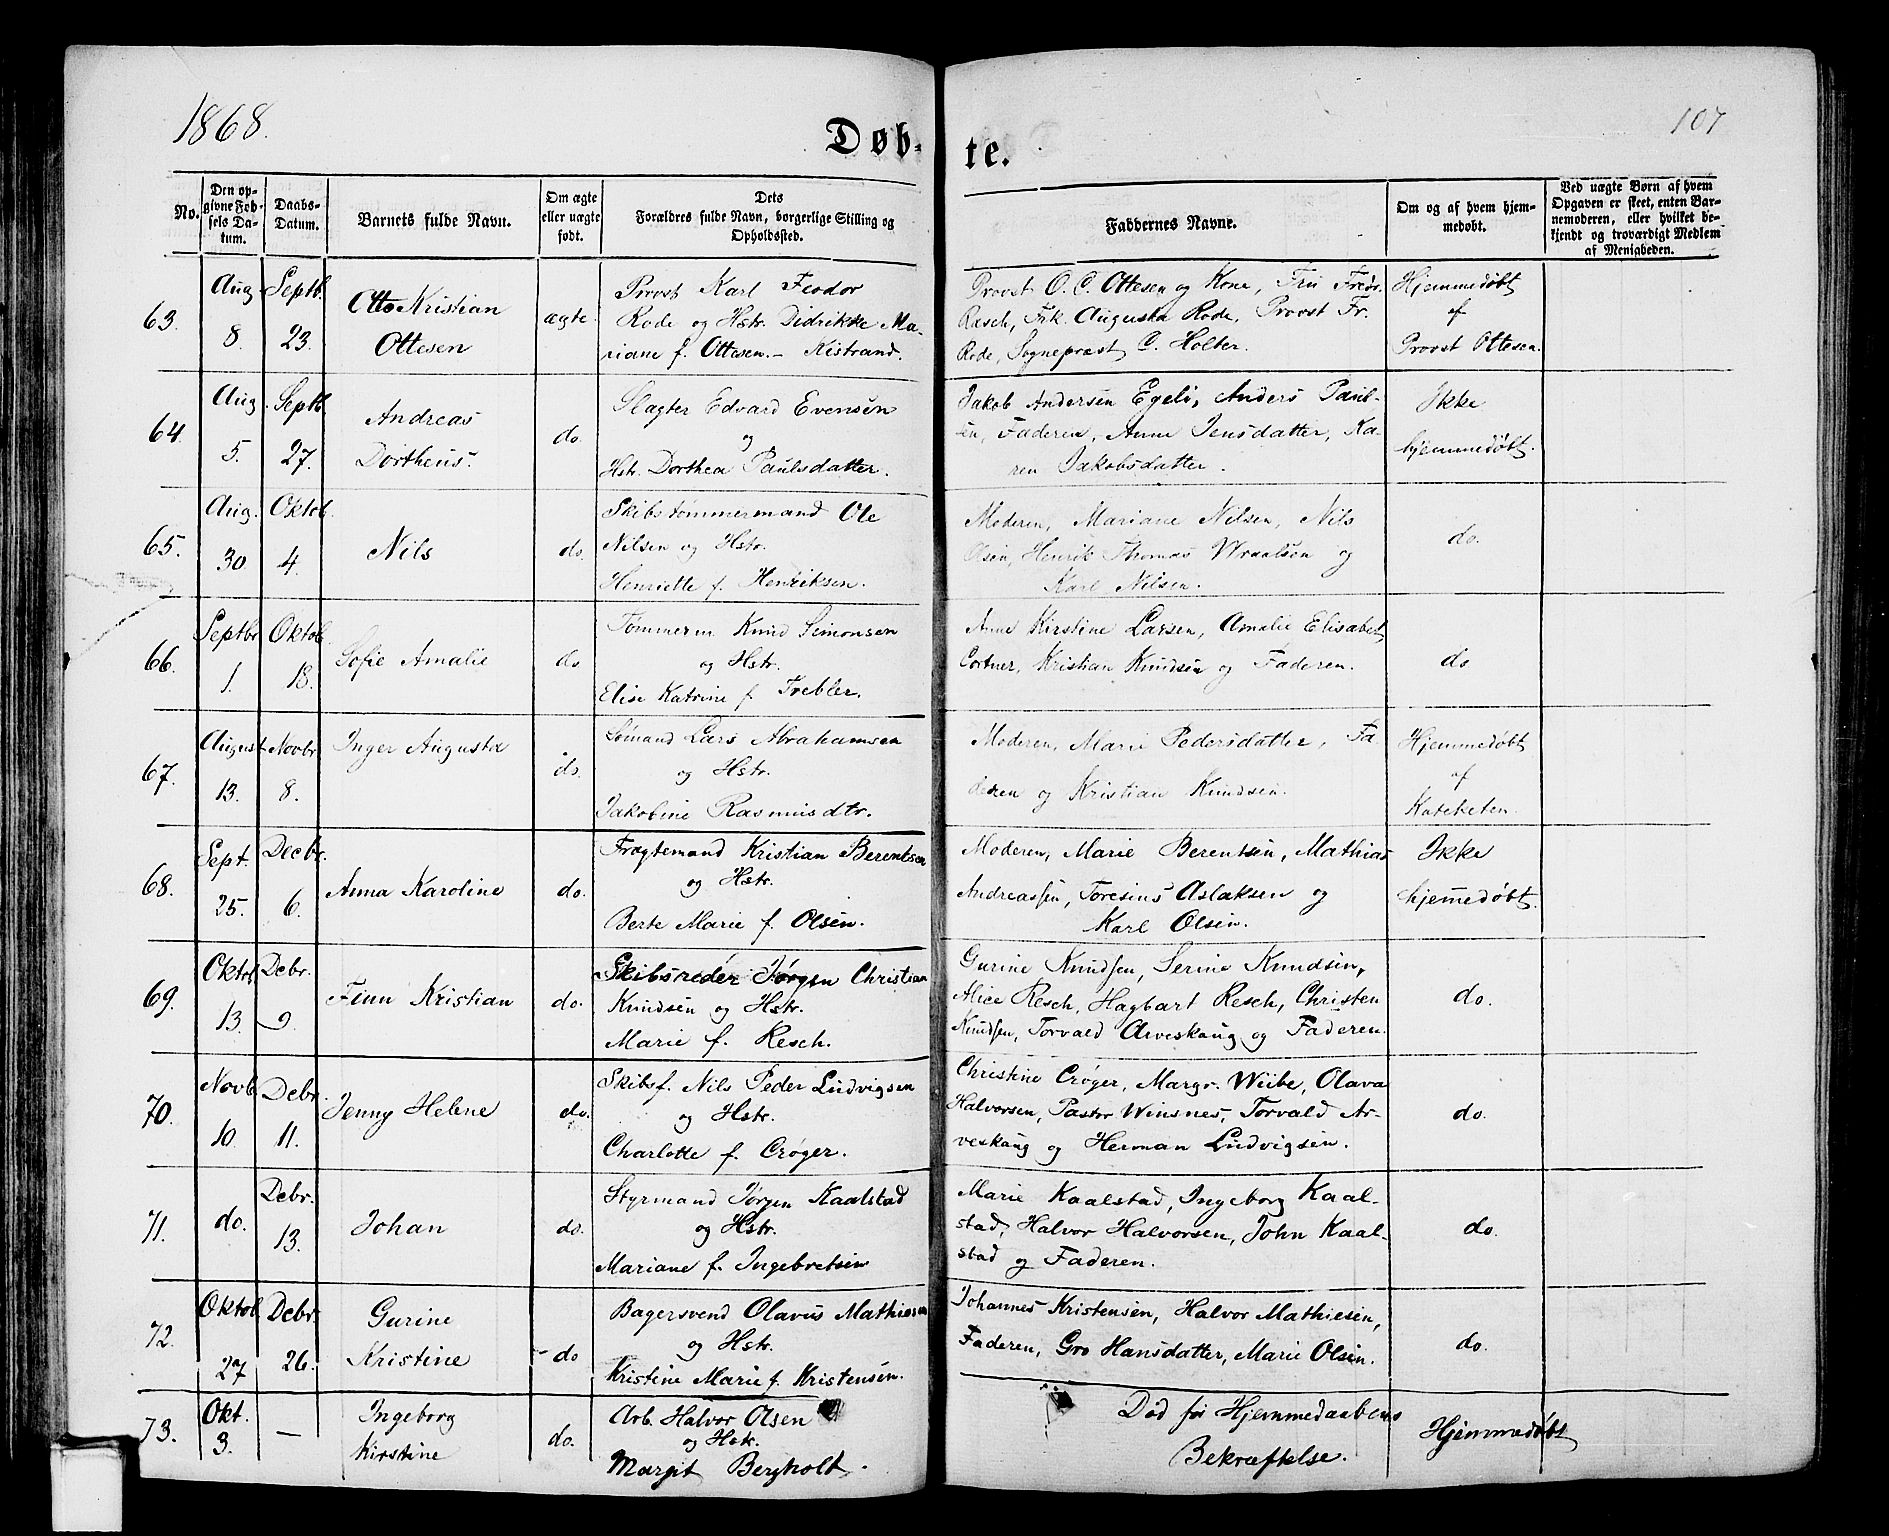 1868.
107
Døb-te.
No.
Den op-
givne Fød-
sels Da-
tum.
Daabs-
Datum.
Barnets fulde Navn.
Om ægte
eller uægte
født.
Dets
Forældres fulde Navn, borgerlige Stilling og
Opholdssted.
Faddernes Navne.
Om og af hvem hjem-
medøbt.
Ved uægte Børn af hvem
Opgaven er skeet, enten Bar-
nemoderen, eller hvilket be-
kjendt og troværdigt Medlem
af Menigheden.
63.
Aug
8.
Septb.
23.
Otto Kristian
Ottesen
ægte
Provst Karl Feodor
Rode og Hstr. Didrikke Ma-
riane f. Ottesen. - Kistrand.
Provst O. C. Ottesen og Kone, Fru Fredr.
Rasch, Frk. Augusta Rode, Provst Fr.
Rode, Sognepræst C. Holter.
Hjemmedøbt
af
Provst Ottesen.
64.
Aug.
5.
Septb.
27.
Andreas
Dortheus.
do.
Slagter Edvard Evensen
og
Hstr. Dorthea Paulsdatter.
Jakob Andersen Egeli, Anders Paul-
sen, Faderen, Anne Jensdatter, Ka-
ren Jakobsdatter.
Ikke
hjemmedøbt.
65.
Aug.
30.
Oktob.
4.
Nils
do.
Skibstømmermand Ole
Nilsen og Hstr.
Henriette f. Henriksen.
Moderen, Mariane Nilsen, Nils
Olsen, Henrik Thomas Wraalsen og
Karl Nilsen.
do.
66.
Septbr
1.
Oktob.
18.
Sofie Amalie
do
Tømmerm Knud Simonsen
og Hstr.
Elise Katrine f. Trebler.
Anne Kirstine Larsen, Amalie Elisabet
Cortner, Kristian Knudsen og Faderen.
do
67.
August
13.
Novbr.
8.
Inger Augusta
do.
Sømand Lars Abrahamsen
og Hstr.
Jakobine Rasmusdtr.
Moderen, Marie Pedersdatter, Fa-
deren og Kristian Knudsen.
Hjemmedøbt
af
Kateketen.
68.
Sept.
25.
Decbr.
6.
Anna Karoline
do.
Fragtemand Kristian Berentsen
og Hstr.
Berte Marie f. Olsen.
Moderen, Marie Berentsen, Mathias
Andreassen, Toresius Aslaksen og
Karl Olsen.
Ikke
hjemmedøbt.
69.
Oktob.
13.
Debr.
9.
Finn Kristian
do.
Skibsreder Jørgen Christian
Knudsen og Hstr.
Marie f. Resch.
Gurine Knudsen, Serine Knudsen,
Alice Resch, Hagbart Resch, Christen
Knudsen, Torvald Arveskaug og Faderen.
do.
70.
Novb.
10.
Debr.
11.
Jenny Helene
do.
Skibsf. Nils Peder Ludvigsen
og Hstr.
Charlotte f. Crøger.
Christine Crøger, Margr. Wiibe, Olava
Halvorsen, Pastor Winsnes, Torvald Ar-
veskaug og Herman Ludvigsen.
do.
71.
do.
Debr.
13.
Johan
do.
Styrmand Jørgen Kaalstad
og Hstr.
Mariane f. Ingebretsen
Marie Kaalstad, Ingeborg Kaal-
stad, Halvor Halvorsen, John Kaal-
stad og Faderen.
do.
72.
Oktob.
27
Debr.
26.
Gurine
Kristine
do
Bagersvend Olavus Mathiesen
og Hstr.
Kristine Marie f. Kristensen.
Johannes Kristensen, Halvor Mathiesen,
Faderen, Gro Hansdatter, Marie Olsen.
do.
73.
Okt.
3.
—
Ingeborg
Kirstine
do.
Arb. Halvor Olsen
og Hstr.
Margit Bergholt.
Død før Hjemmedaabens
Bekræftelse.
Hjemmedøbt